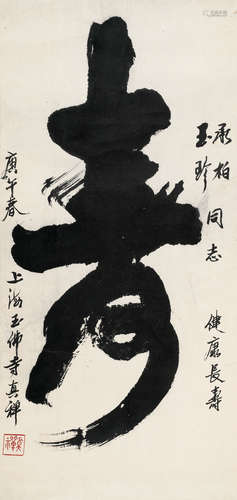 承柏
玉珍
同志
健康長壽
壽
庚午春
上海玉佛寺真禪